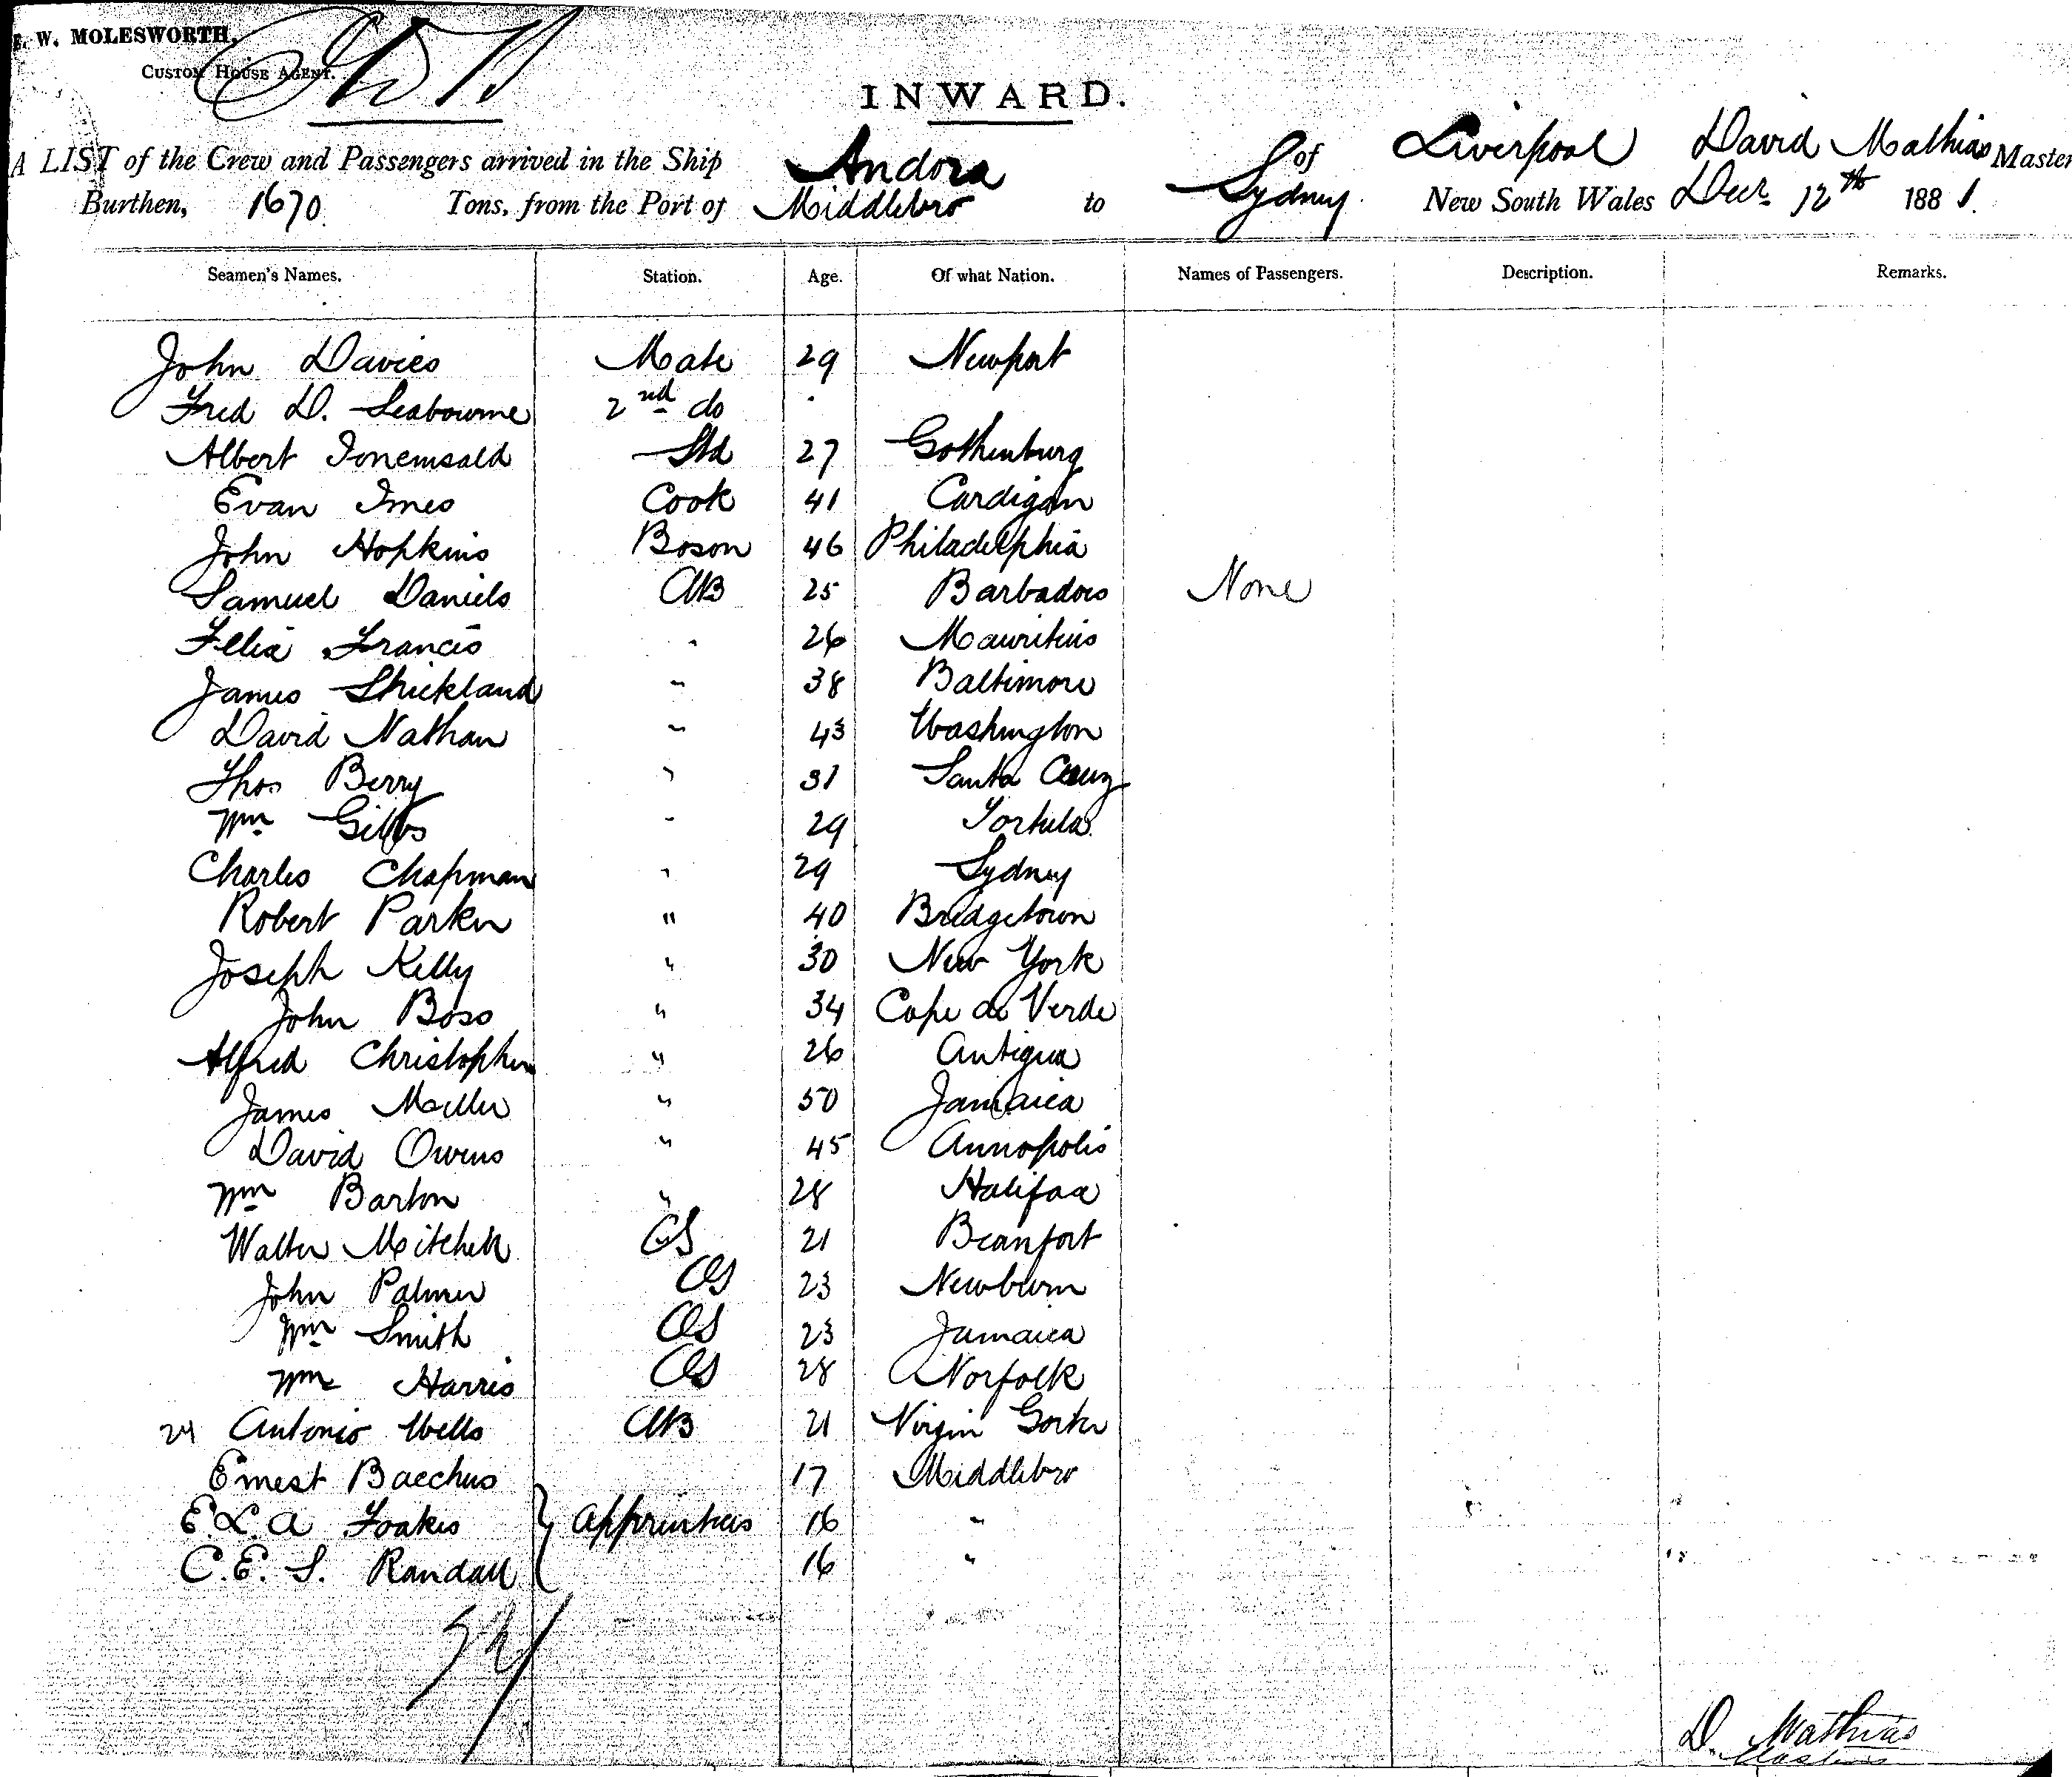 W. MOLESWORTH,
CUSTOM HOUSE AGENT.
INWARD.
A LIST of the Crew and Passengers arrived in the Ship Andora of Liverpool David Mathias Master
Burthen, 1670 Tons, from the Port of Middlebro to Sydney New South Wales Decr 12th 1881.
Seamen's Names. Station. Age. Of what Nation. Names of Passengers. Description. Remarks.
John Davies Mate 29 Newport
Fred D. Seabourne 2nd do
Albert Std 27 Gothenburg
Evan Cook 41 Cardigan
John Hopkins Boson 46 Philadelphia
Samuel Daniels AB 25 Barbadoes None
Felix Francis " 26 Mauritius
James Strickland " 38 Baltimore
David Nathan " 43 Washington
Thos Berry " 31 Santa Cruz
Wm Gibbs " 29 Tortula
Charles Chapman " 29 Sydney
Robert Parker " 40 Bridgetown
Joseph Kelly " 30 New York
John Boss " 34 Cape de Verde
Alfred Christopher " 26 Antigua
James Miller " 50 Jamaica
David Owens " 45 Annopolis
Wm Barton " 28 Halifax
Walter Mitchell OS 21 Beaufort
John Palmer OS 23 Newburn
Wm Smith OS 23 Jamaica
Wm Harris OS 28 Norfolk
24 Antonio Wells AB 21 Virgin Gorter
Ernest Bacchus 17 Middlebro
E. L. A Foakes } Apprentices 16 "
C. E. S. Randall 16 "
D. Mathias
Master